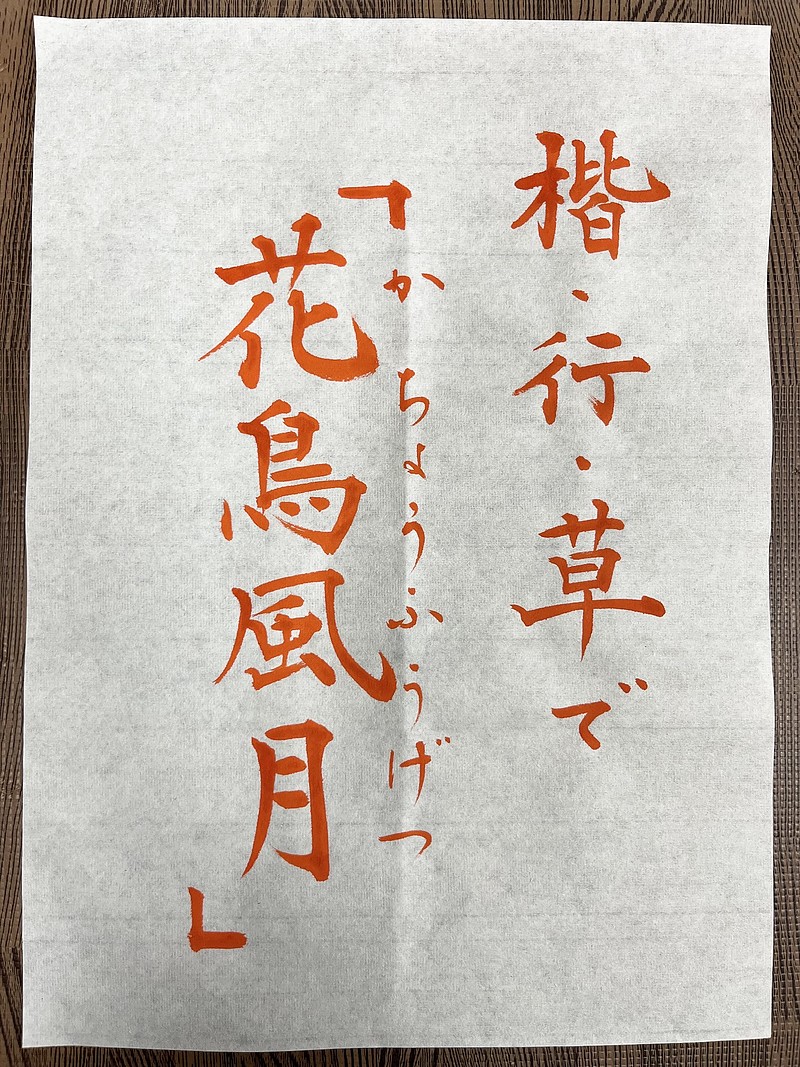 楷・行・草で
かちょうふうげつ
「花鳥風月」